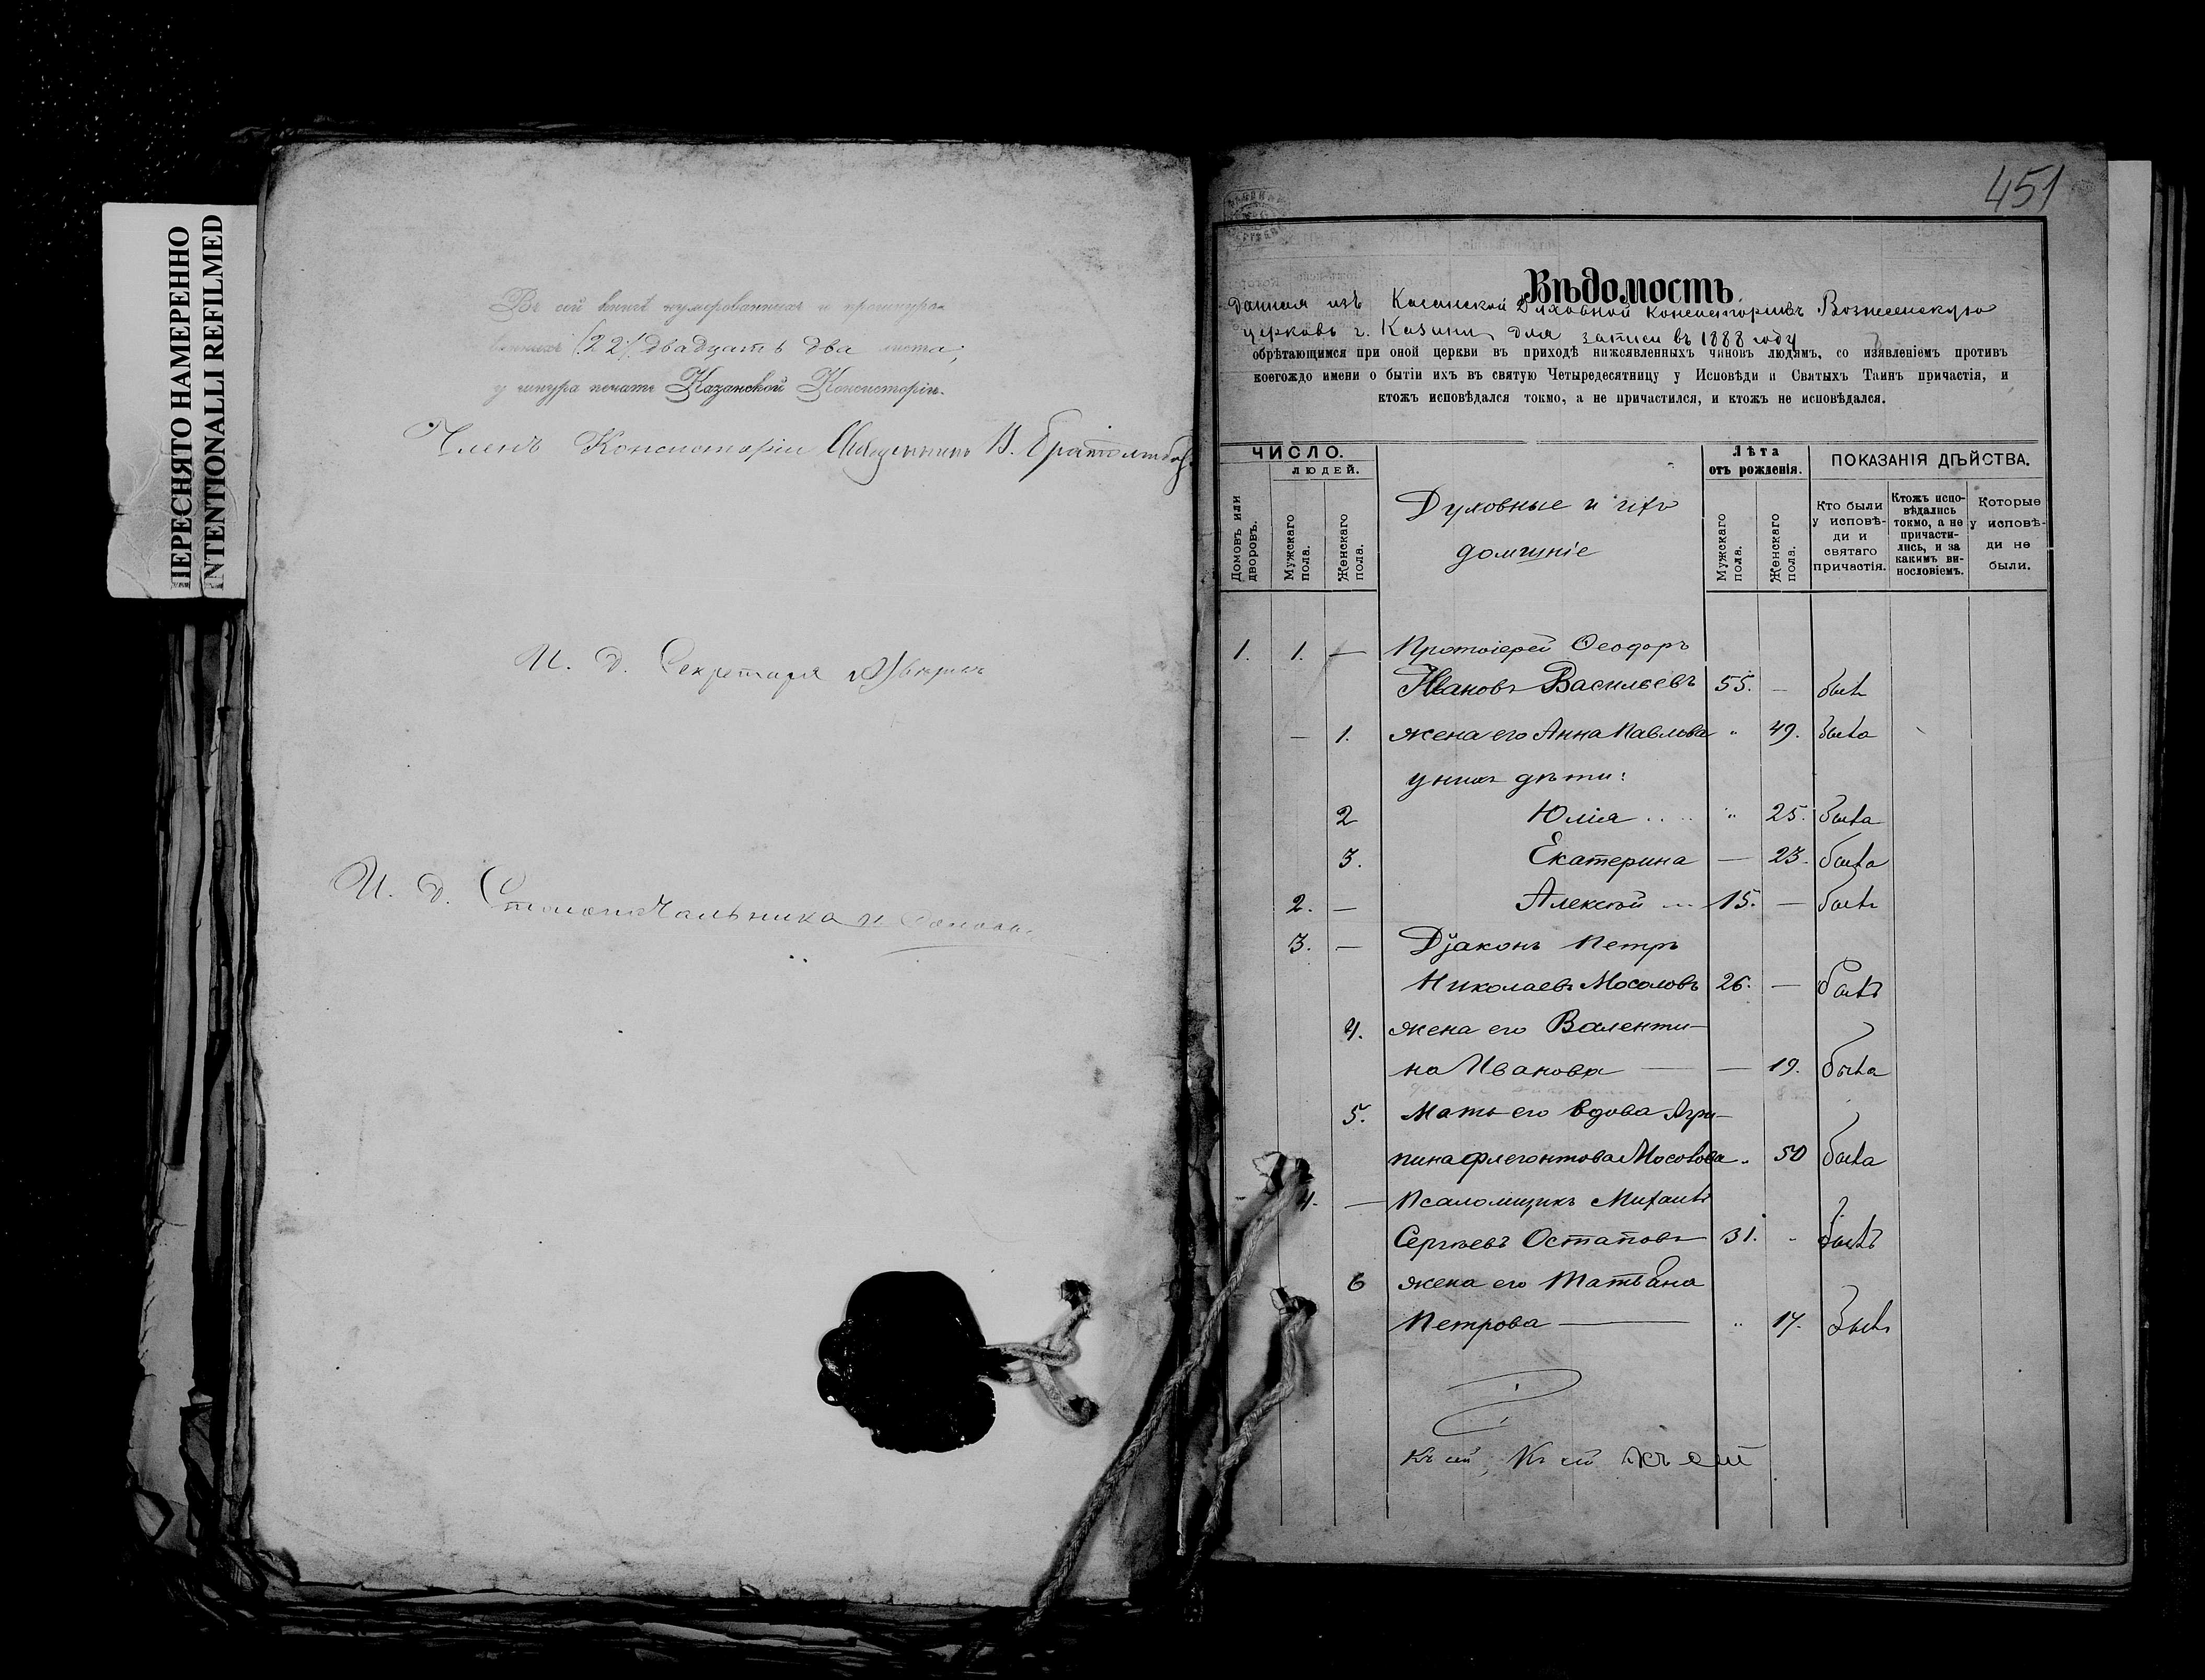 ПЕРЕСНЯТО НАМЕРЕННО
INTENTIONALLI REFILMED
Въ сей книгѣ нумерованныхъ и прошнуро-
ванныхъ (22) двадцать два листа,
у шнура печать Казанской Консисторіи.
Членъ Консисторіи Священникъ В.
И. Д. Секретаря
И. Д. Столоначальника
451
Вѣдомость
данная изъ Казанской Духовной Консисторіи въ Вознесенскую
церковь г. Казани для записи въ 1888 году
обрѣтающимся при оной церкви въ приходѣ нижеявленныхъ чиновъ людямъ, со изявленіемъ противъ
коегождо имени о бытіи ихъ въ святую Четыредесятницу у Исповѣди и Святыхъ Таинъ причастія, и
ктожъ исповѣдался токмо, а не причастился, и ктожъ не исповѣдался.
ЧИСЛО.
ЛЮДЕЙ.
Домовъ или дворовъ.
Мужскаго пола.
Женскаго пола.
Духовные и ихъ
домашніе
Лѣта
отъ рожденія.
Мужскаго пола.
Женскаго пола.
ПОКАЗАНІЯ ДѢЙСТВА.
Кто были
у исповѣ-
ди и
святаго
причастія.
Ктожъ испо-
вѣдались
токмо, а не
причасти-
лись, и за
какимъ ви-
нословіемъ.
Которые
у исповѣ-
ди не
были.
1. 1. — Протоіерей Ѳеодоръ
Ивановъ Васильевъ 55. — былъ
— 1. жена его Анна Павлова " 49. была
у нихъ дѣти:
2 Юлія .. .. " 25. была
3. Екатерина — 23. была
2. — Алексѣй ... 15. — былъ
3. — Діаконъ Петръ
Николаевъ Мосоловъ 26. — былъ
4. жена его Валенти-
на Иванова — — 19. была
5. Мать его вдова Агри-
пина Флегонтова Мосолова " 50 была
4. — Псаломщикъ Михаилъ
Сергѣевъ Остаповъ 31. " былъ
6 жена его Татьяна
Петрова — " 17. былъ
Къ сей, Къ сей